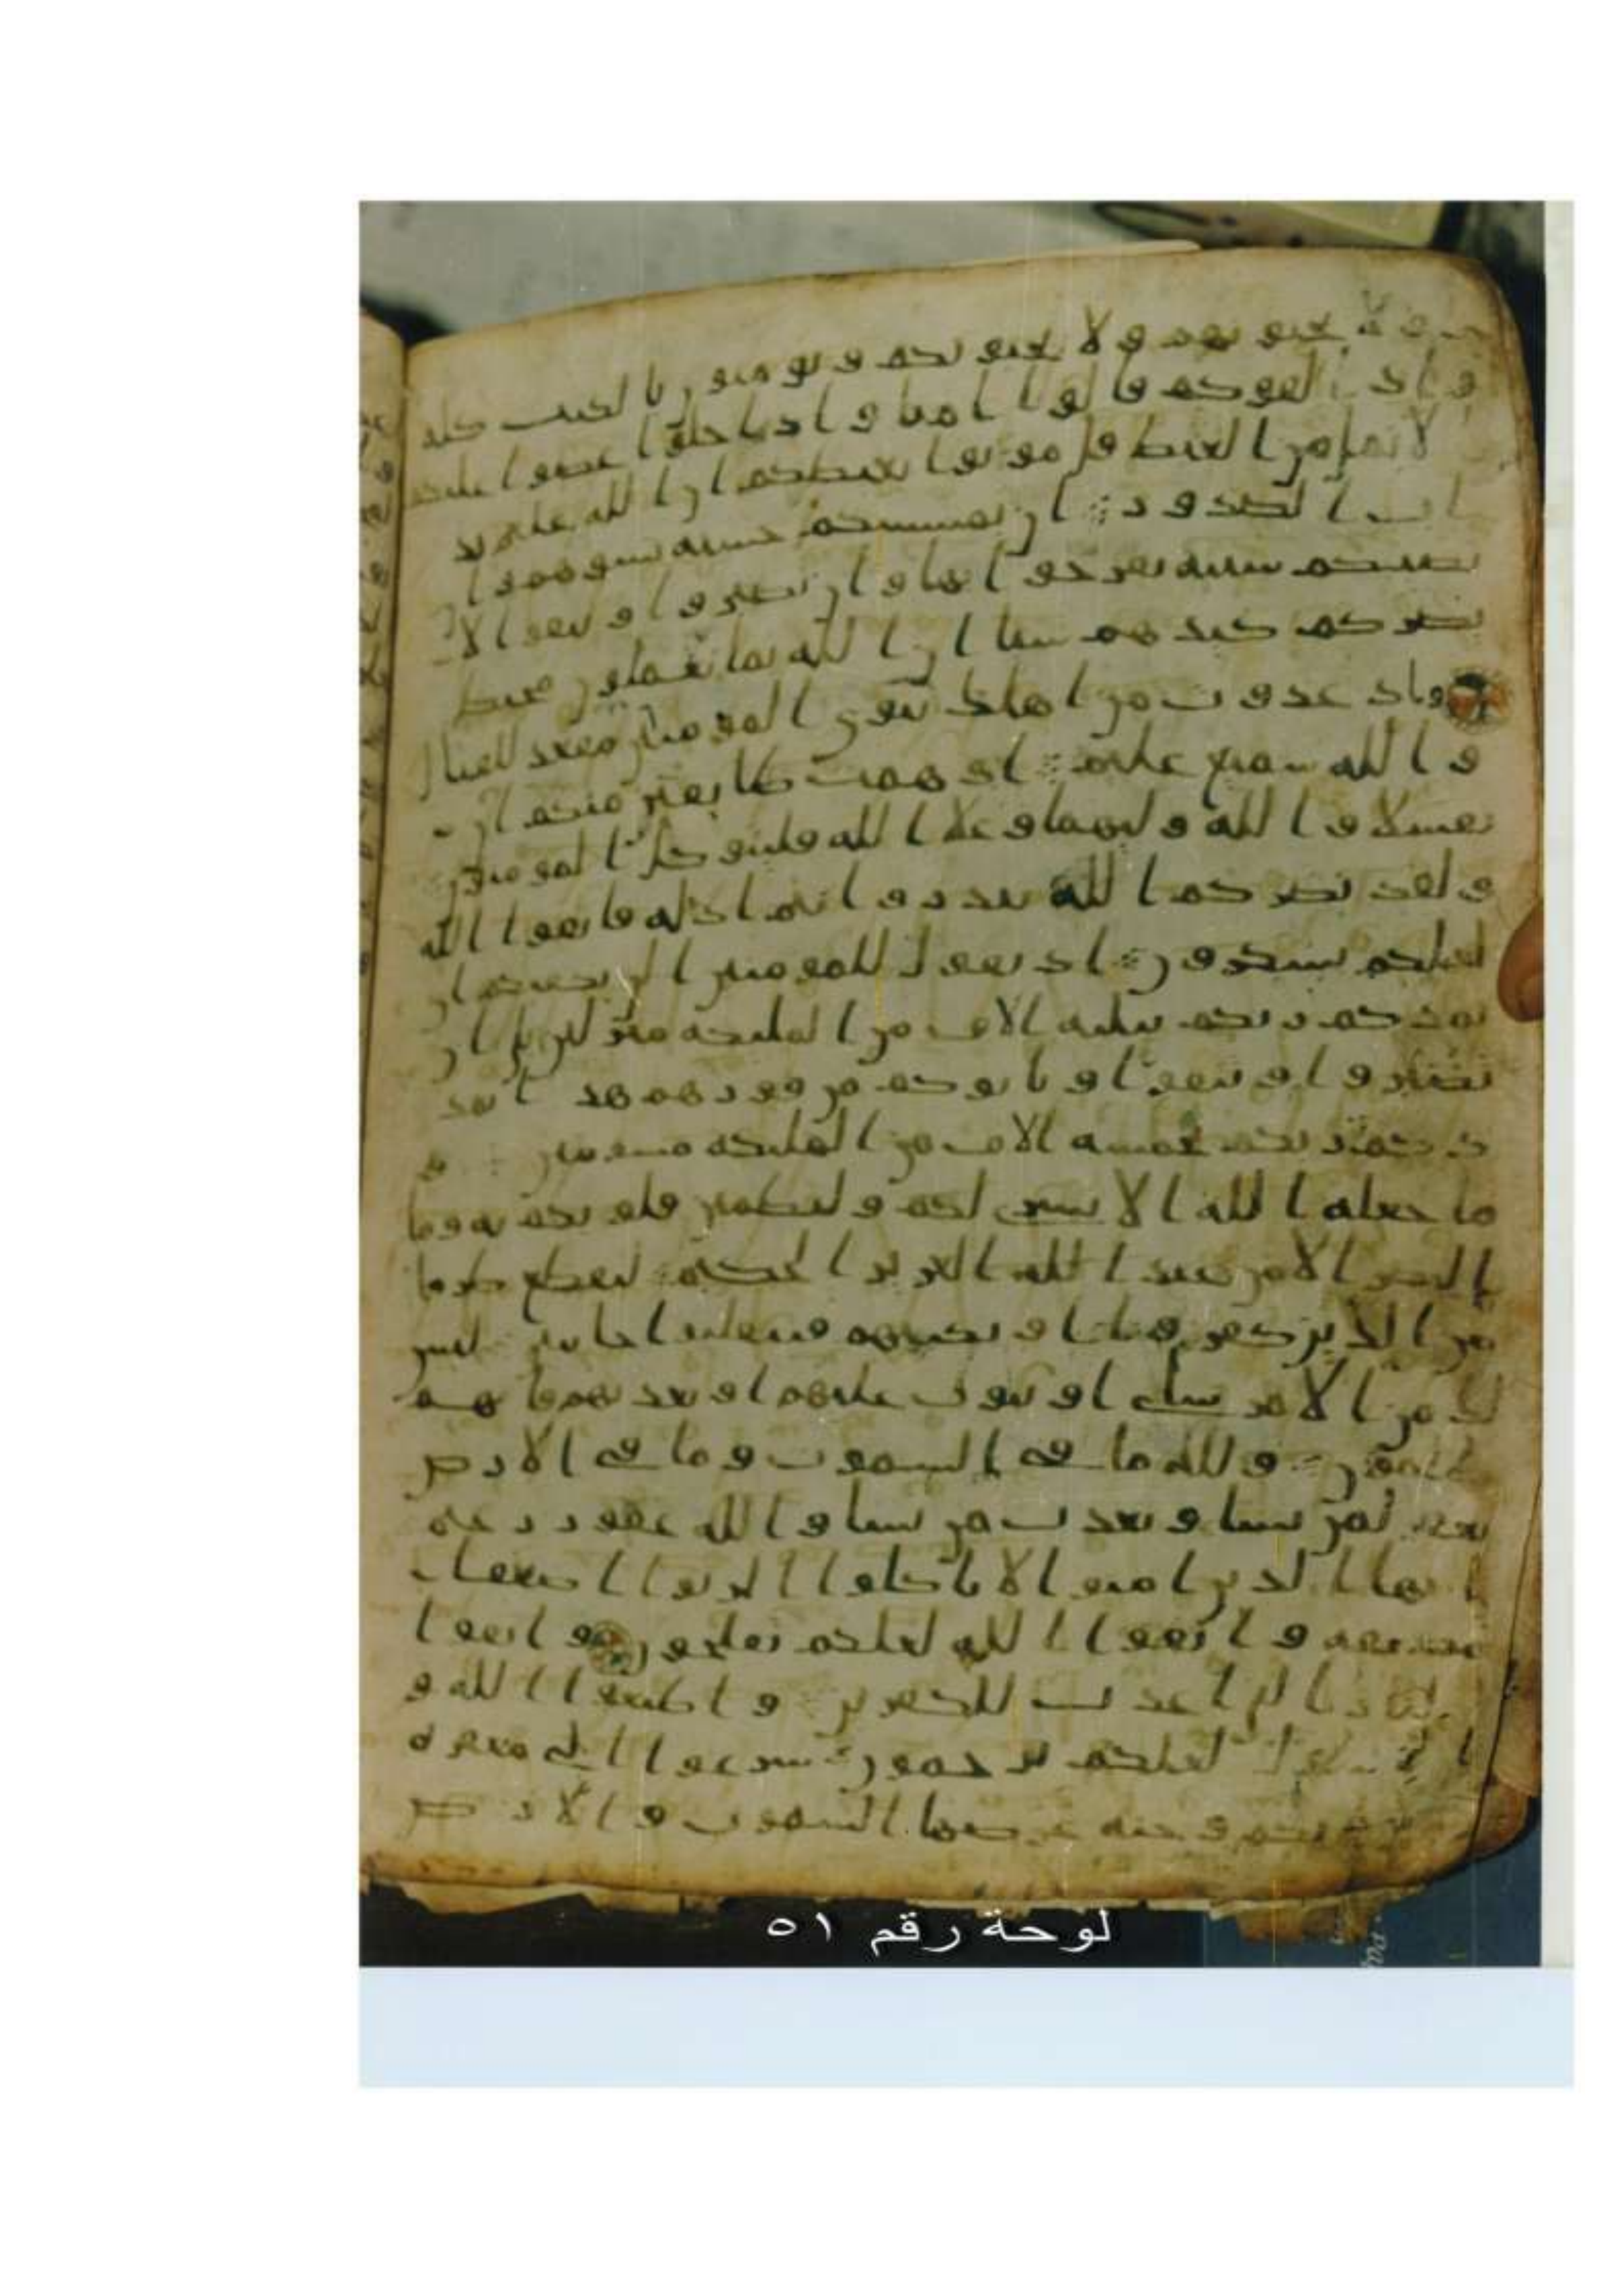 ولا تحبونهم ولا يحبونكم وتومنون بالكتب كله
واذا لقوكم قالوا امنا واذا خلوا عضوا عليكم
الانمل من الغيظ قل موتوا بغيظكم ان الله عليم بذ
ات الصدور ان تمسسكم حسنه تسوهم وا
تصبكم سييه يفرحوا بها وان تصبروا وتتقوا لا
يضركم كيدهم شيا ان الله بما يعملون محيط
واذ غدوت من اهلك تبوى المومنين مقعد للقتال
والله سميع عليم اذ همت طايفتين منكم ان
تفشلا والله وليهما وعلا الله فليتوكل المومنون
ولقد نصركم الله ببدر وانتم اذله فاتقوا الله
لعلكم تشكرون اذ تقول للمومنين الن يكفيكم ان
يمدكم ربكم بثلثه الاف من المليكه منزلين بلى ان
تصبروا وتتقوا وياتوكم من فورهم هذا يمد
دكم ربكم بخمسه الاف من المليكه مسومين و
ما جعله الله الا بشرى لكم ولتطمين قلوبكم به وما
النصر الا من عند الله العزيز الحكيم ليقطع طرفا
من الذين كفروا او يكبتهم فينقلبوا خايبين ليس
لك من الامر شاى او يتوب عليهم او يعذبهم فانهم
ظلمون ولله ما فى السموت وما فى الارض
يغفر لمن يشا ويعذب من يشا والله غفور رحيم
يايها الذين امنوا لا تاكلوا الربوا اضعفا
مضعفه واتقوا الله لعلكم تفلحون واتقوا
النار التى اعدت للكفرين واطيعوا الله و
الرسول لعلكم ترحمون سرعوا الى مغفره
من ربكم وجنه عرضها السموت والارض
لوحة رقم ٥١